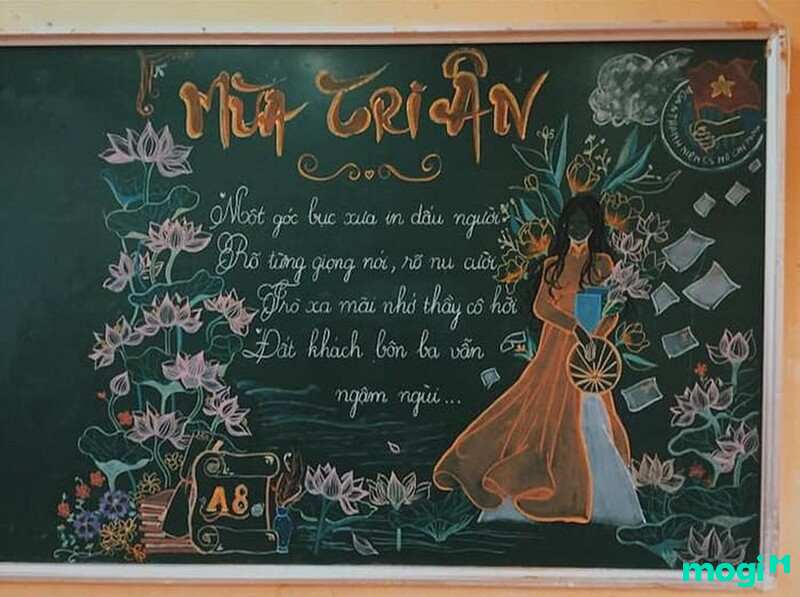 MÙA TRI ÂN
Một góc bục xưa in dấu người
Rõ từng giọng nói, rõ nụ cười
Trò xa mãi nhớ thầy cô hỡi
Đất khách bôn ba vẫn
ngậm ngùi...
A8
ĐOÀN THANH NIÊN CS HỒ CHÍ MINH
mogi